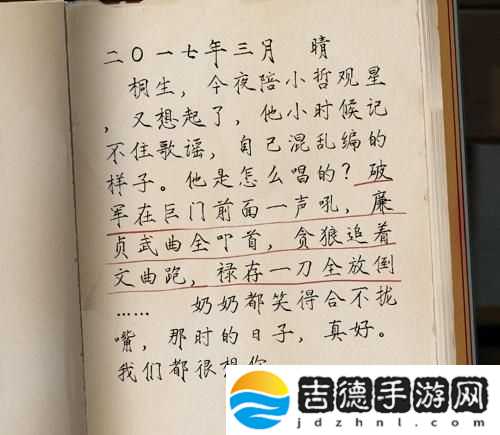 二〇一七年三月 晴
桐生，今夜陪小哲观星
，又想起了，他小时候记
不住歌谣，自己混乱编的
样子。他是怎么唱的？破
军在巨门前面一声吼，廉
贞武曲全叩首，贪狼追着
文曲跑，禄存一刀全放倒
…… 奶奶都笑得合不拢
嘴，那时的日子，真好。
我们都很想你
吉德手游网
jdzhnl.com